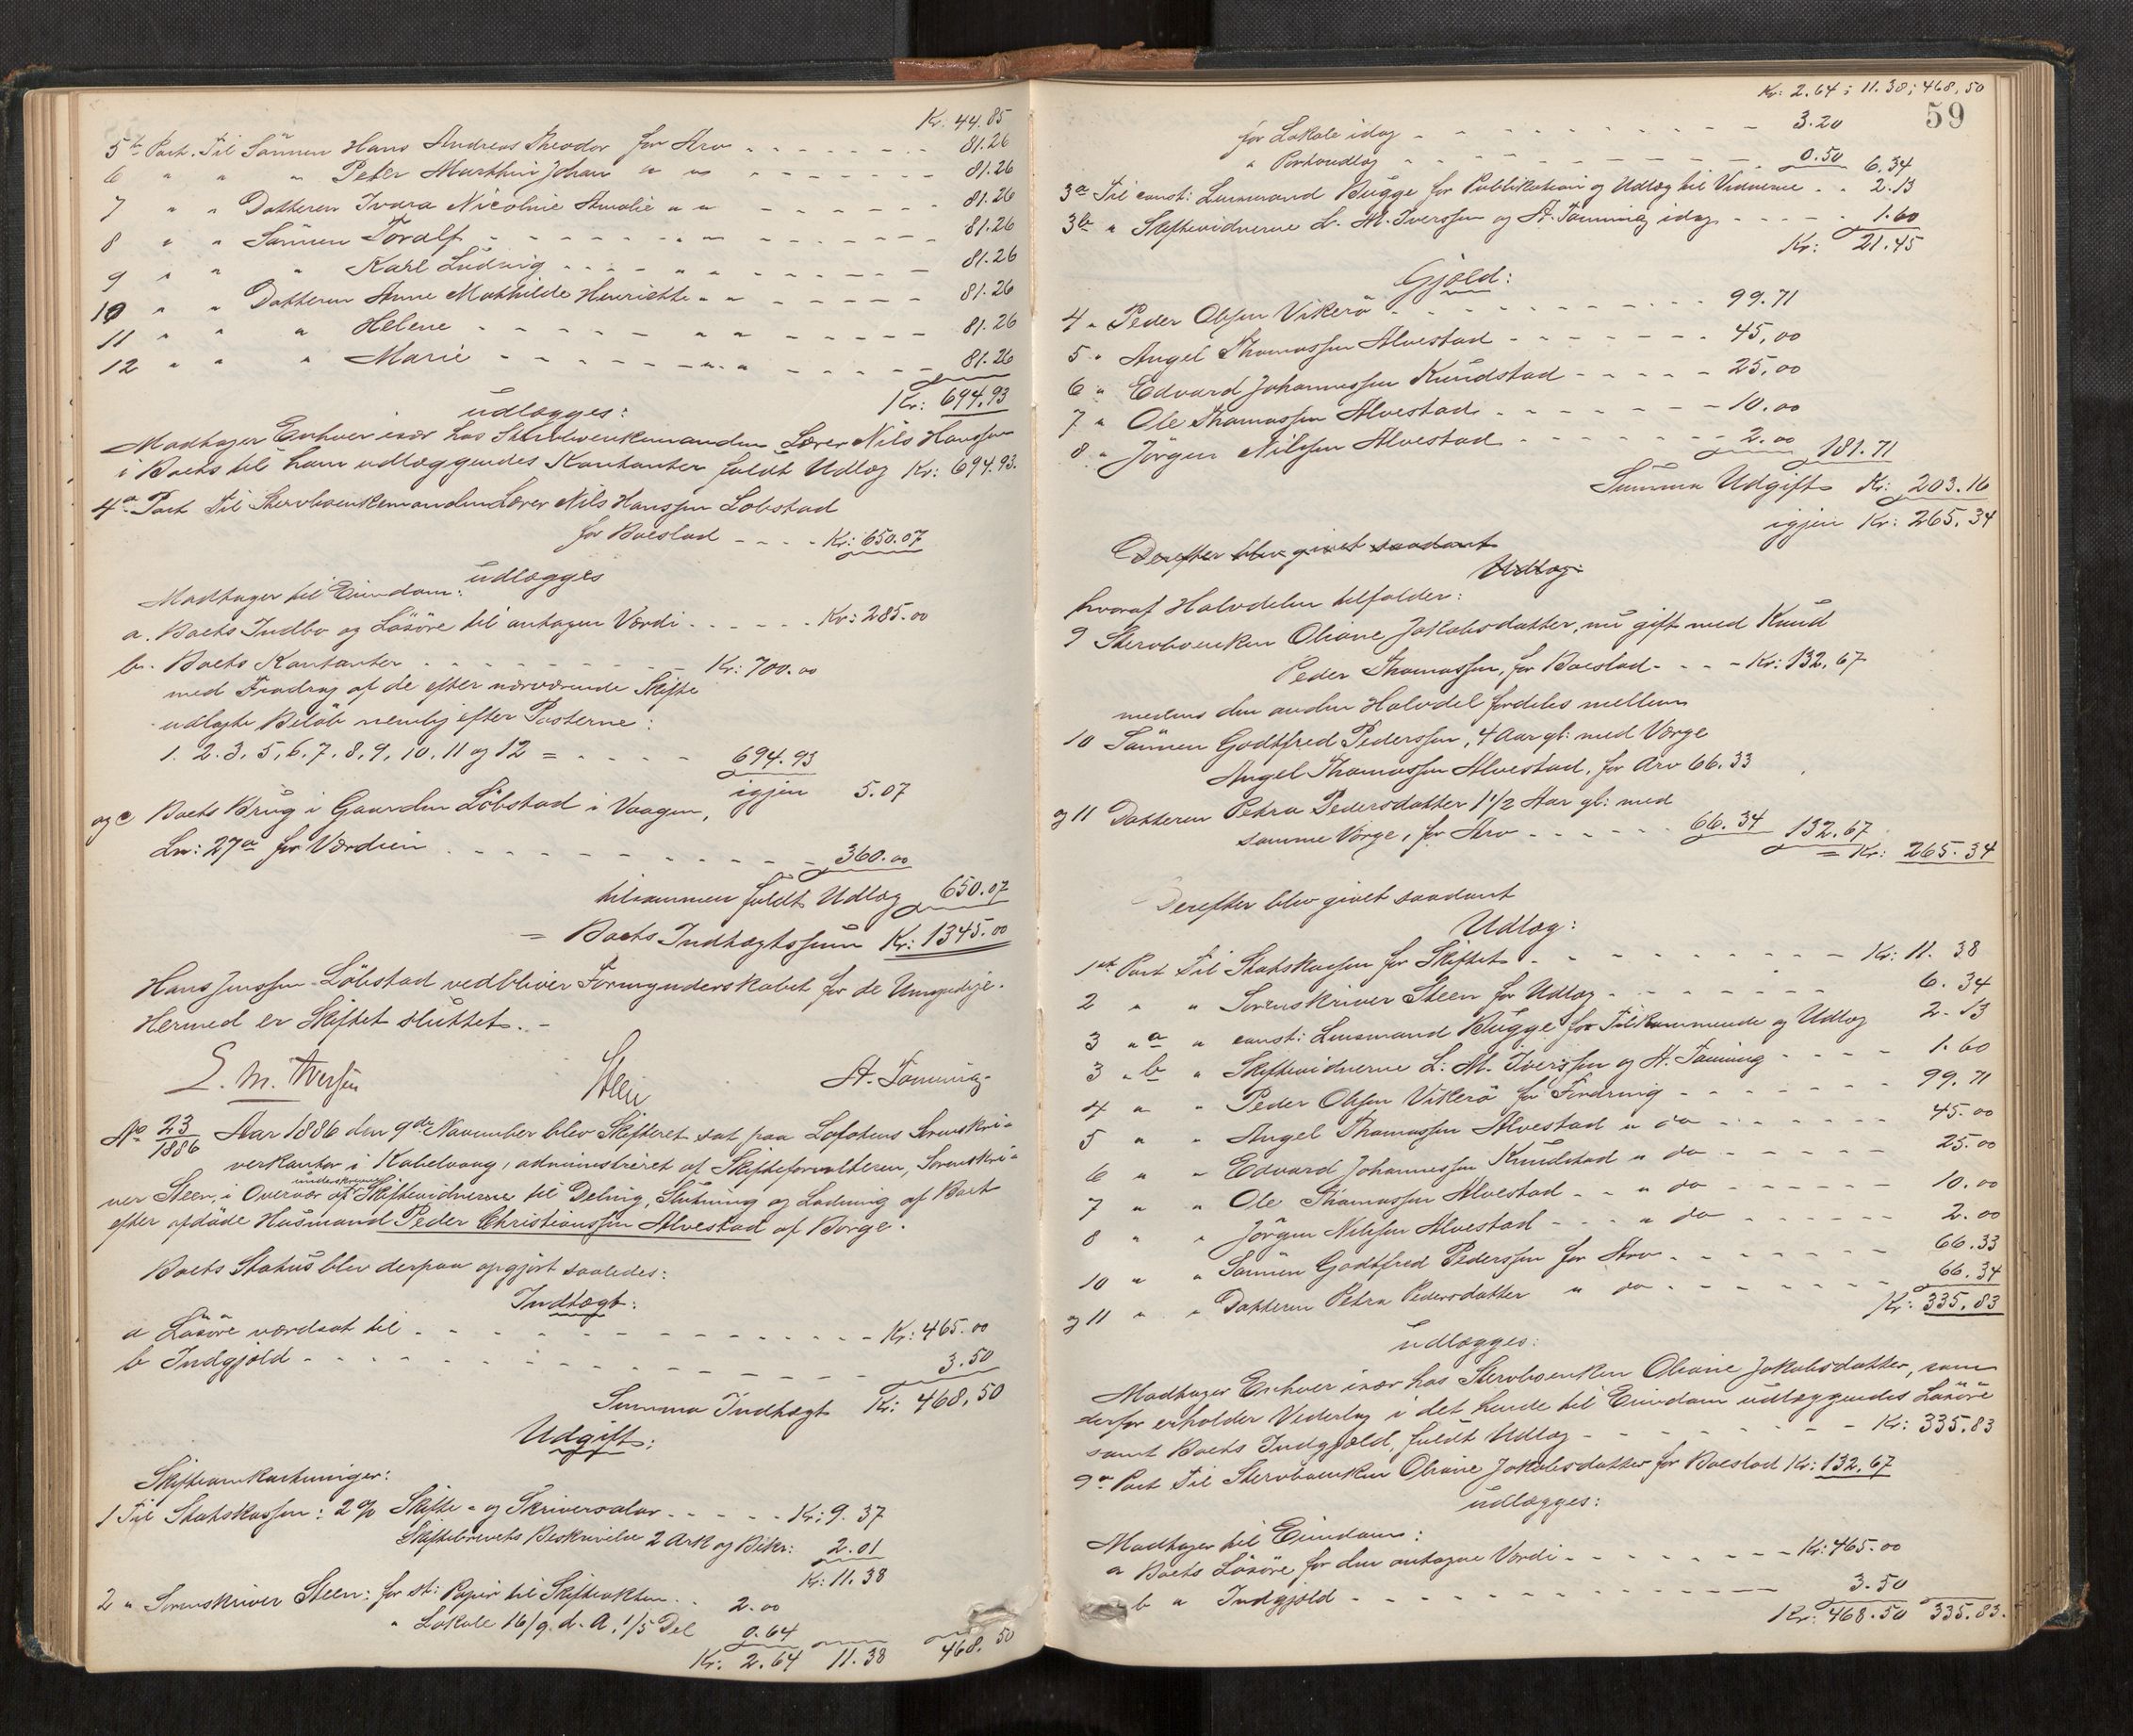 Kr. 44.85
5te Post. Til Sönnen Hans Andreas Theodor for Arv - - - - 81.26
6 " " " Peter Marthin Johan " " - - - - 81.26
7 " " Datteren Ivara Nicoline Amalie " " - - - - 81.26
8 " " Sönnen Toralf - - - - " " - - - - 81.26
9 " " " Karl Ludvig - - - " " - - - - 81.26
10 " " Datteren Anne Mathilde Henriette " " - - - - 81.26
11 " " " Helene - - - - " " - - - - 81.26
12 " " " Marie - - - - " " - - - - 81.26
Kr: 694.93
udlægges:
Modtager Enhver især hos Stervboenkemanden Lærer Nils Hanssen
i Boets til ham udlæggendes Kontanter fuldt Udlæg Kr: 694.93.
4a Post Til Stervboenkemanden Lærer Nils Hanssen Löbstad
for Boeslod - - - - Kr: 650.07
udlægges
Modtager til Eiendom:
a. Boets Indbo og Lösöre til antagen Værdi - - - - Kr: 285.00
b. Boets Kontanter - - - - Kr: 700.00
med Fradrag af de efter nærværende Skifte
udlagte Belöb nemlig efter Posterne:
1. 2. 3, 5, 6, 7. 8, 9, 10, 11 og 12 = - - - - 694.93
igjen 5.07
og c Boets Brug i Gaarden Löbstad i Vaagen,
Ln: 27a for Værdien - - - - 360.00
tilsammen fuldt Udlæg 650.07
= Boets Indtægtssum Kr: 1345.00
Hans Jenssen Löbstad vedbliver Formynderskabet for de Umyndige.
Hermed er Skiftet sluttet. -
L. M. Iversen Steen A. Tonning
No 23/1886 Aar 1886 den 9de November blev Skifteret sat paa Lofotens Sorenskri-
verkontor i Kabelvaag, administreret af Skifteforvalteren, Sorenskri-
ver Steen, i Overvær af underskrevne Skiftevidnerne til Deling, Slutning og Lodning af Boet
efter afdöde Husmand Peder Christianssen Alvestad af Borge.
Boets Status blev derpaa opgjort saaledes:
Indtægt:
a Lösöre værdsat til - - - - Kr: 465.00
b Indgjæld - - - - 3.50
Summa Indtægt Kr: 468,50
Udgift:
Skifteomkostninger:
1 Til Statskassen: 2% Skifte- og Skriversalær - - - - Kr: 9.37
Skiftebrevets Beskrivelse 2 Ark og Bekr: 2.01
Kr: 11.38
2 " Sorenskriver Steen: for st: Papir til Skifteakten - - 2.00
" Lokale 16/9 d. A. 1/5 Del 0.64
Kr: 2.64 11.38 468.50
Kr: 2.64; 11.38; 468,50
59
for Lokale idag - - - - 3.20
" Portoudlæg - - - - 0.50 6,34
3a Til const: Lensmand Bugge for Publikation og Udlæg til Vidnerne - - 2.13
3b " Skiftevidnerne L. M. Iverssen og A. Tonning idag - - - - 1.60
Kr: 21.45
Gjæld:
4 " Peder Olsen Vikerö - - - - 99.71
5 " Angel Thomassen Alvestad - - - - 45,00
6 " Edvard Johannessen Kundstad - - - - 25,00
7 " Ole Thomassen Alvestad - - - - 10.00
8 " Jörgen Nilssen Alvestad - - - - 2.00 181.71
Summa Udgift Kr: 203.16
igjen Kr: 265.34
Derefter blev givet saadant
Udlæg:
hvoraf Halvdelen tilfalder:
9 Stervboenken Oliane Jakobsdatter, nu gift med Knud
Peder Thomassen, for Boeslod - - - Kr: 132,67
medens den anden Halvdel fordeles mellem
10 Sönnen Godtfred Pederssen, 4 Aar gl: med Værge
Angel Thomassen Alvestad, for Arv 66.33
og 11 Datteren Petra Pedersdatter 1 1/2 Aar gl: med
samme Værge, for Arv - - - - 66.34 132.67
= Kr: 265.34
Derefter blev givet saadant
Udlæg:
1ste Post Til Statskassen for Skiftet - - - - Kr: 11.38
2 " " Sorenskriver Steen for Udlæg - - - - 6.34
3 " a " const: Lensmand Bugge for Tilkommende og Udlæg 2.13
3 " b " Skiftevidnerne L. M. Iverssen og A. Tonning - - - - 1.60
4 " " Peder Olsen Vikerö for Fordring - - - - 99.71
5 " " Angel Thomassen Alvestad " do - - - - 45.00
6 " " Edvard Johannessen Kundstad " do - - - - 25.00
7 " " Ole Thomassen Alvestad - - " do - - - - 10.00
8 " " Jörgen Nilssen Alvestad - - - " do - - - - 2.00
10 " " Sönnen Godtfred Pederssen for Arv - - - - 66.33
og 11 " " Datteren Petra Pedersdatter " do - - - - 66.34
Kr: 335,83
udlægges:
Modtager Enhver især hos Stervboenken Oliane Jakobsdatter, som
derfor erholder Vederlag i det hende til Eiendom udlæggendes Lösöre
samt Boets Indgjæld, fuldt Udlæg - - - - Kr: 335,83
9de Post Til Stervboenken Oliane Jakobsdatter for Boeslod Kr: 132,67
udlægges:
Modtager til Eiendom:
a Boets Lösöre for den antagne Værdi - - - - Kr: 465.00
b " Indgjæld - - - - 3.50
Kr: 468.50 335.83.